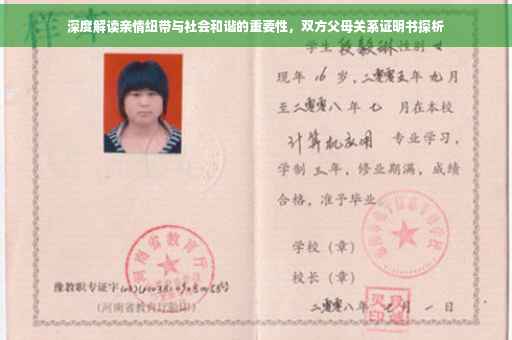 深度解读亲情纽带与社会和谐的重要性，双方父母关系证明书探析
样本
学生 段毅琳 性别 女
现年 16 岁，二零零五年 九月
至二零零八年 七 月在本校
计算机应用 专业学习，
学制 三年，修业期满，成绩
合格，准予毕业
学校（章）
校长（章）
二零零八年 七月 一日
河南省教育厅
豫教职专证字
（河南省教育厅验印）